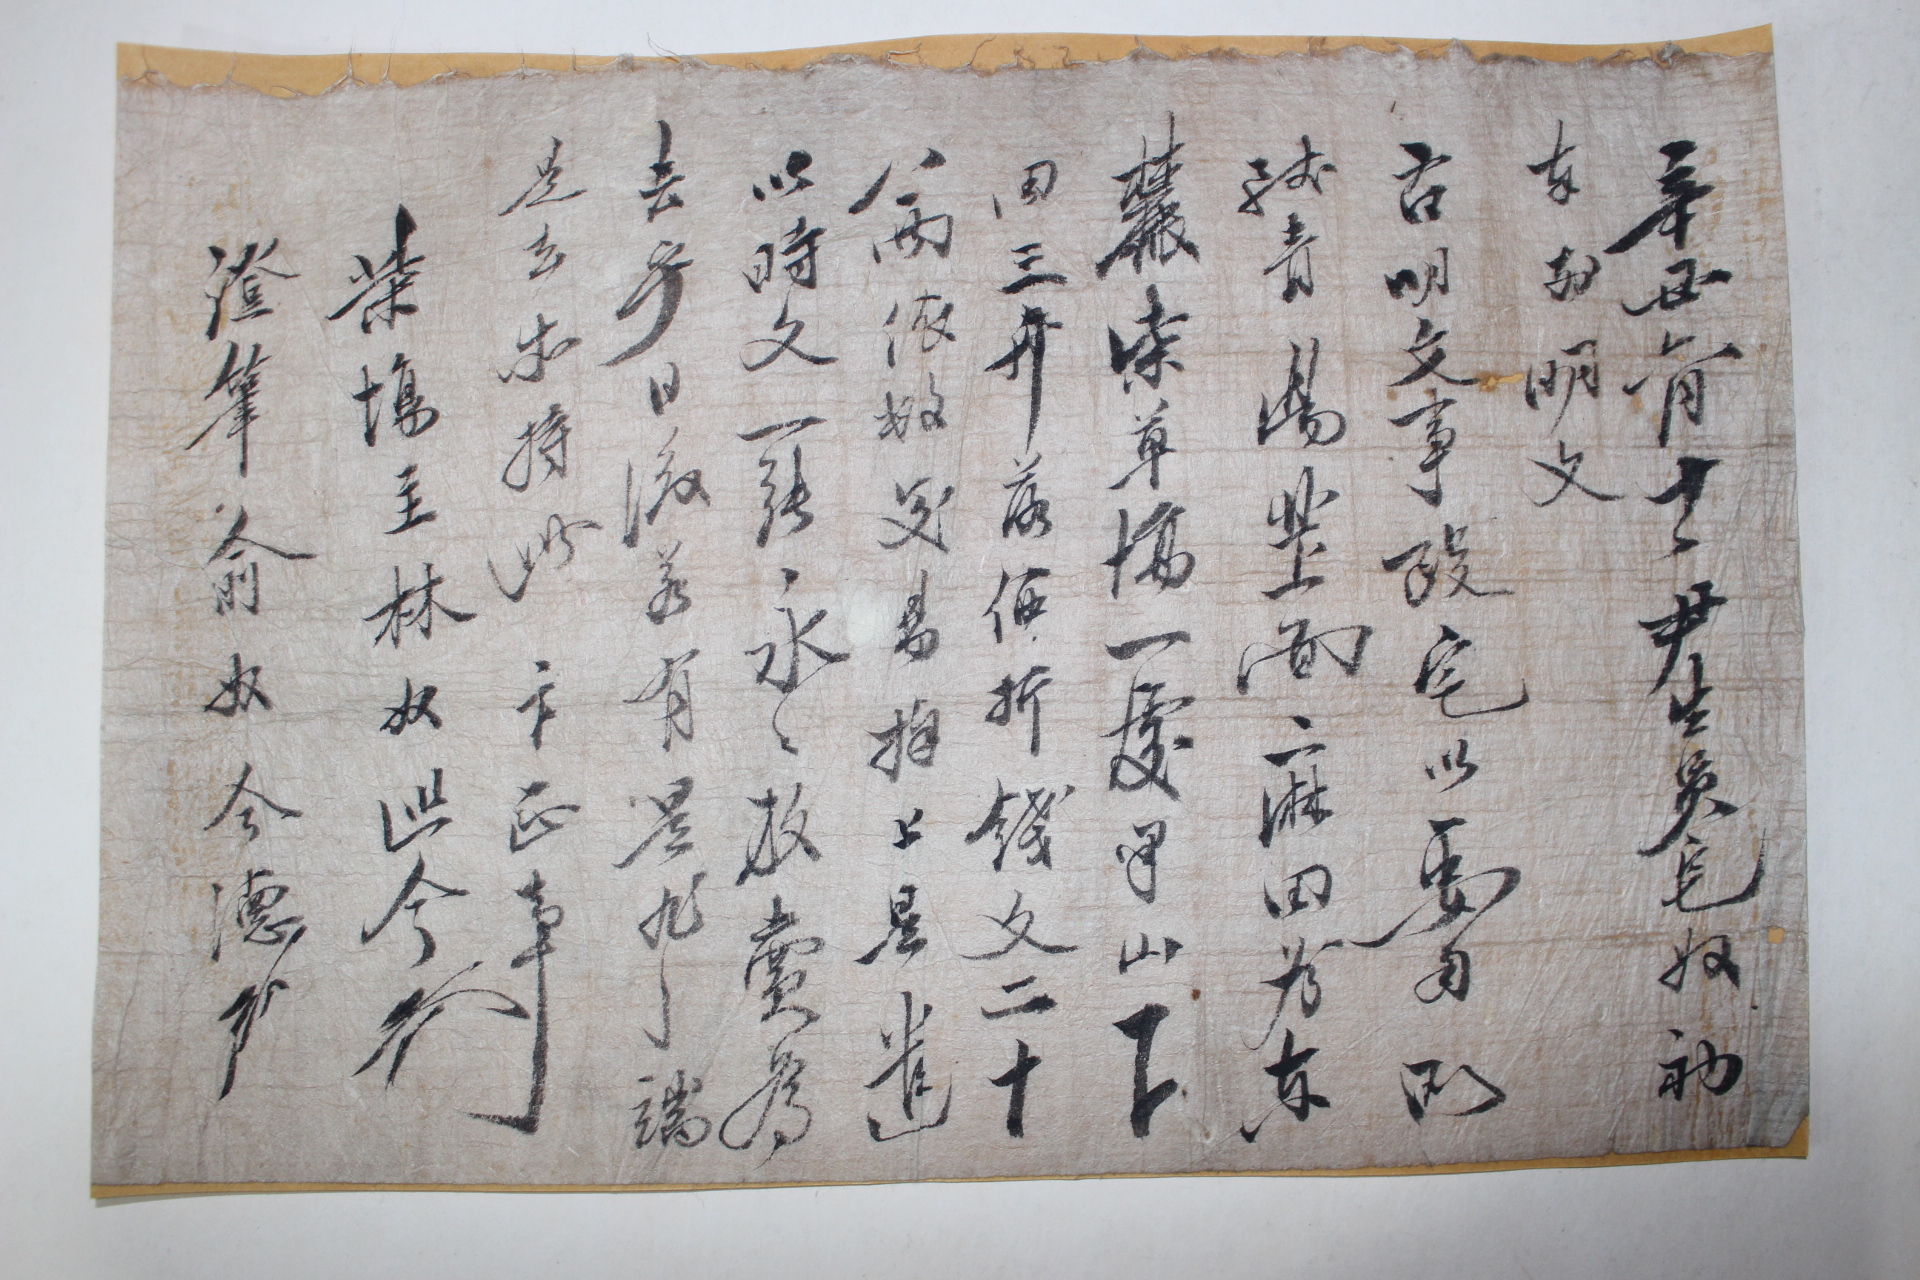 辛丑六月十二尹生員宅奴初
右前明文
右明文事段宅以要用所
致青陽北上面二麻田洞東
麓柴草場一處果山下
田三斗落価折錢文二十
八兩依數交易捧上是遣
以時文一張永永放賣爲
去乎日後若有是非之端
是去等持此卞正事
柴場主林奴此今
證筆兪奴今德